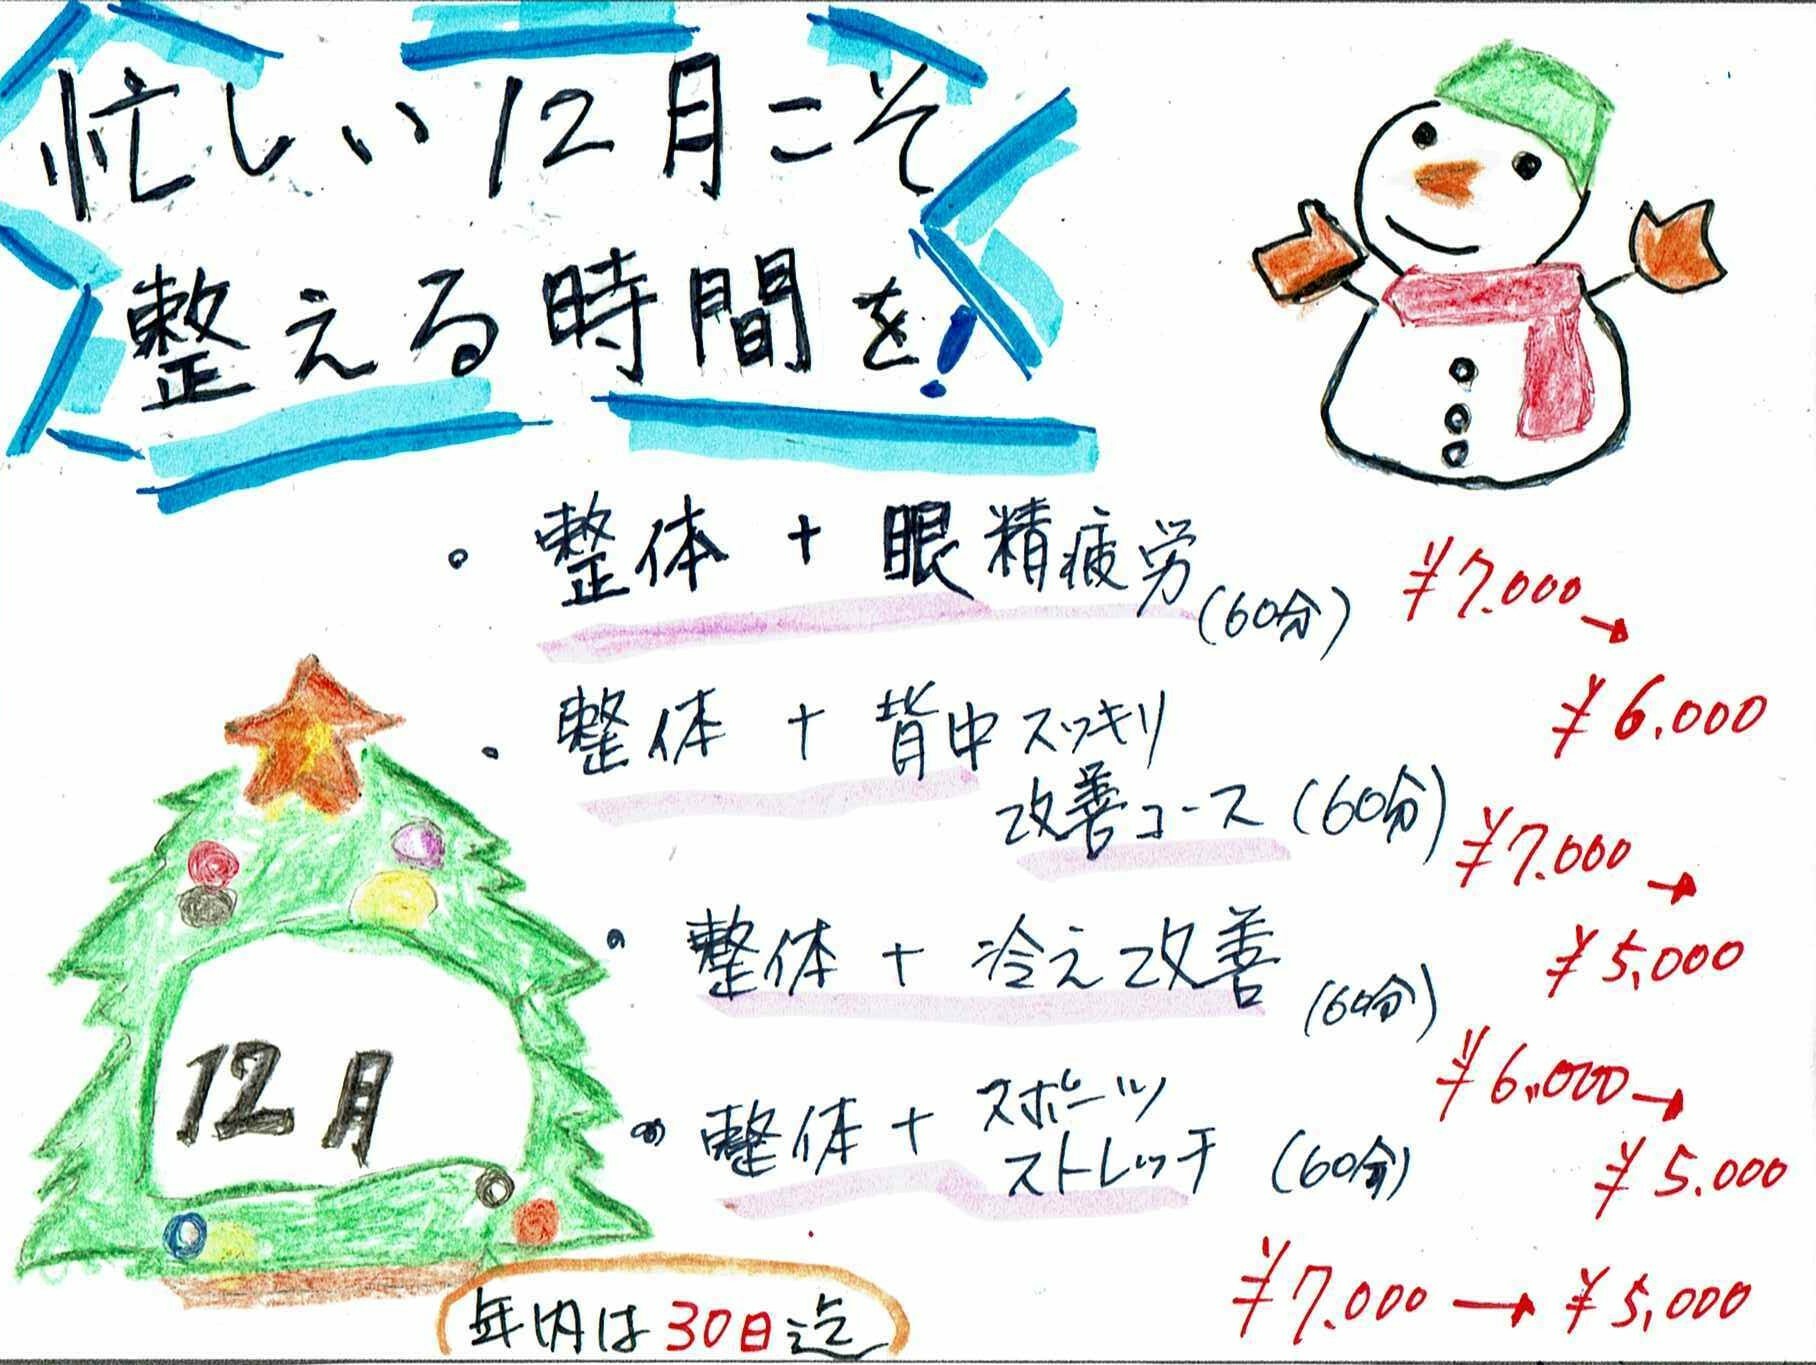 忙しい12月こそ
整える時間を!
・整体 + 眼精疲労(60分)
¥7.000→
¥6.000
・整体 + 背中スッキリ
改善コース(60分)
¥7.000→
¥5,000
・整体 + 冷え改善(60分)
¥6,000→
¥5.000
・整体 + スポーツ
ストレッチ(60分)
¥7.000→¥5,000
12月
年内は30日迄